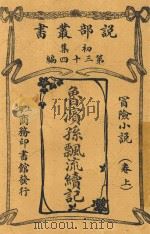 說部叢書
初集
第三十四編
冒險小說
(卷上)
魯濱孫飄流續記
商務印書館發行